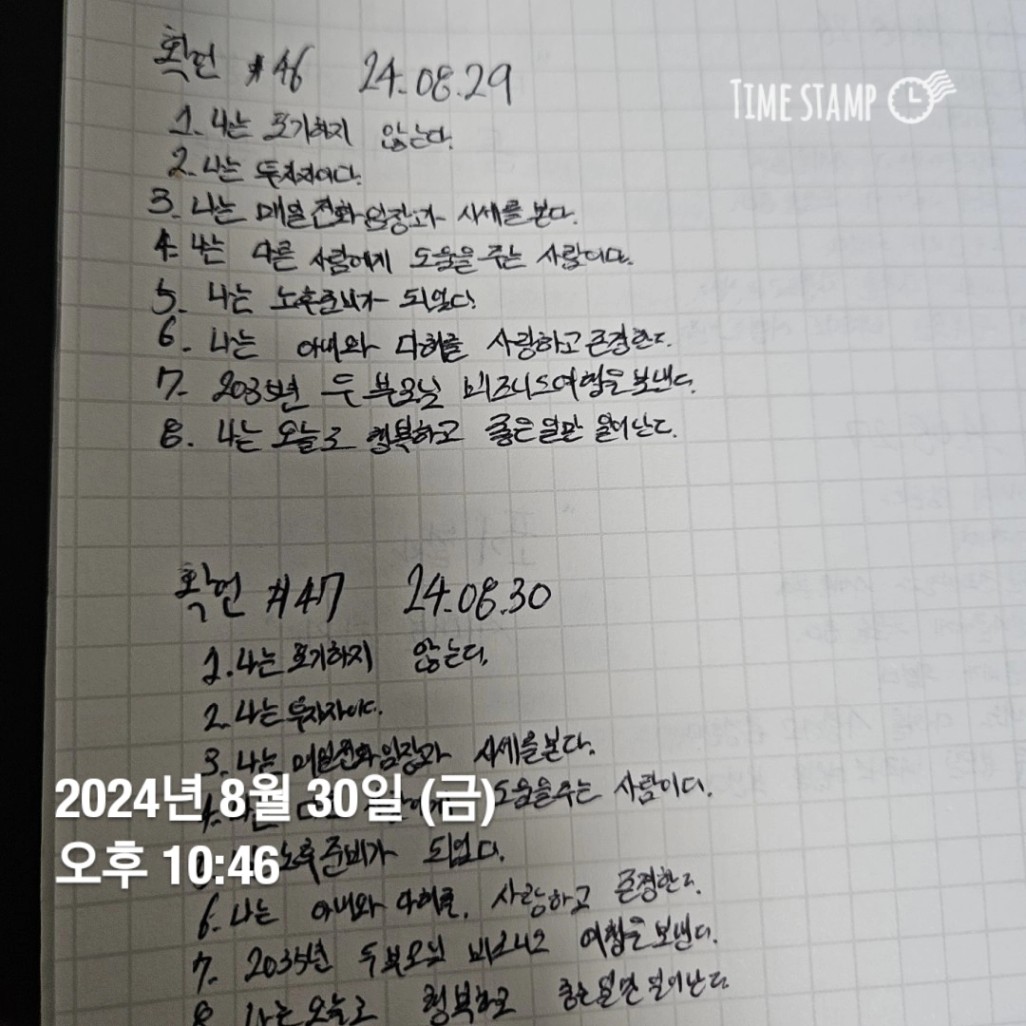 확언 #46 24.08.29
TIME STAMP
1. 나는 포기하지 않는다.
2. 나는 투자자이다.
3. 나는 매일 전화임장과 시세를 본다.
4. 나는 다른 사람에게 도움을 주는 사람이다.
5. 나는 노후준비가 되었다.
6. 나는 아내와 다혜를 사랑하고 존경한다.
7. 2035년 두 부모님 비즈니스여행을 보낸다.
8. 나는 오늘도 행복하고 좋은일만 일어난다.
확언 #47 24.08.30
1. 나는 포기하지 않는다.
2. 나는 투자자이다.
3. 나는 매일전화임장과 시세를 본다.
도움을주는 사람이다.
2024년 8월 30일 (금)
노후준비가 되었다.
오후 10:46
6. 나는 아내와 다혜를, 사랑하고 존경한다.
7. 2035년 두부모님 여행을 보낸다.
8 나는오늘도 행복하고 좋은일만 일어난다.